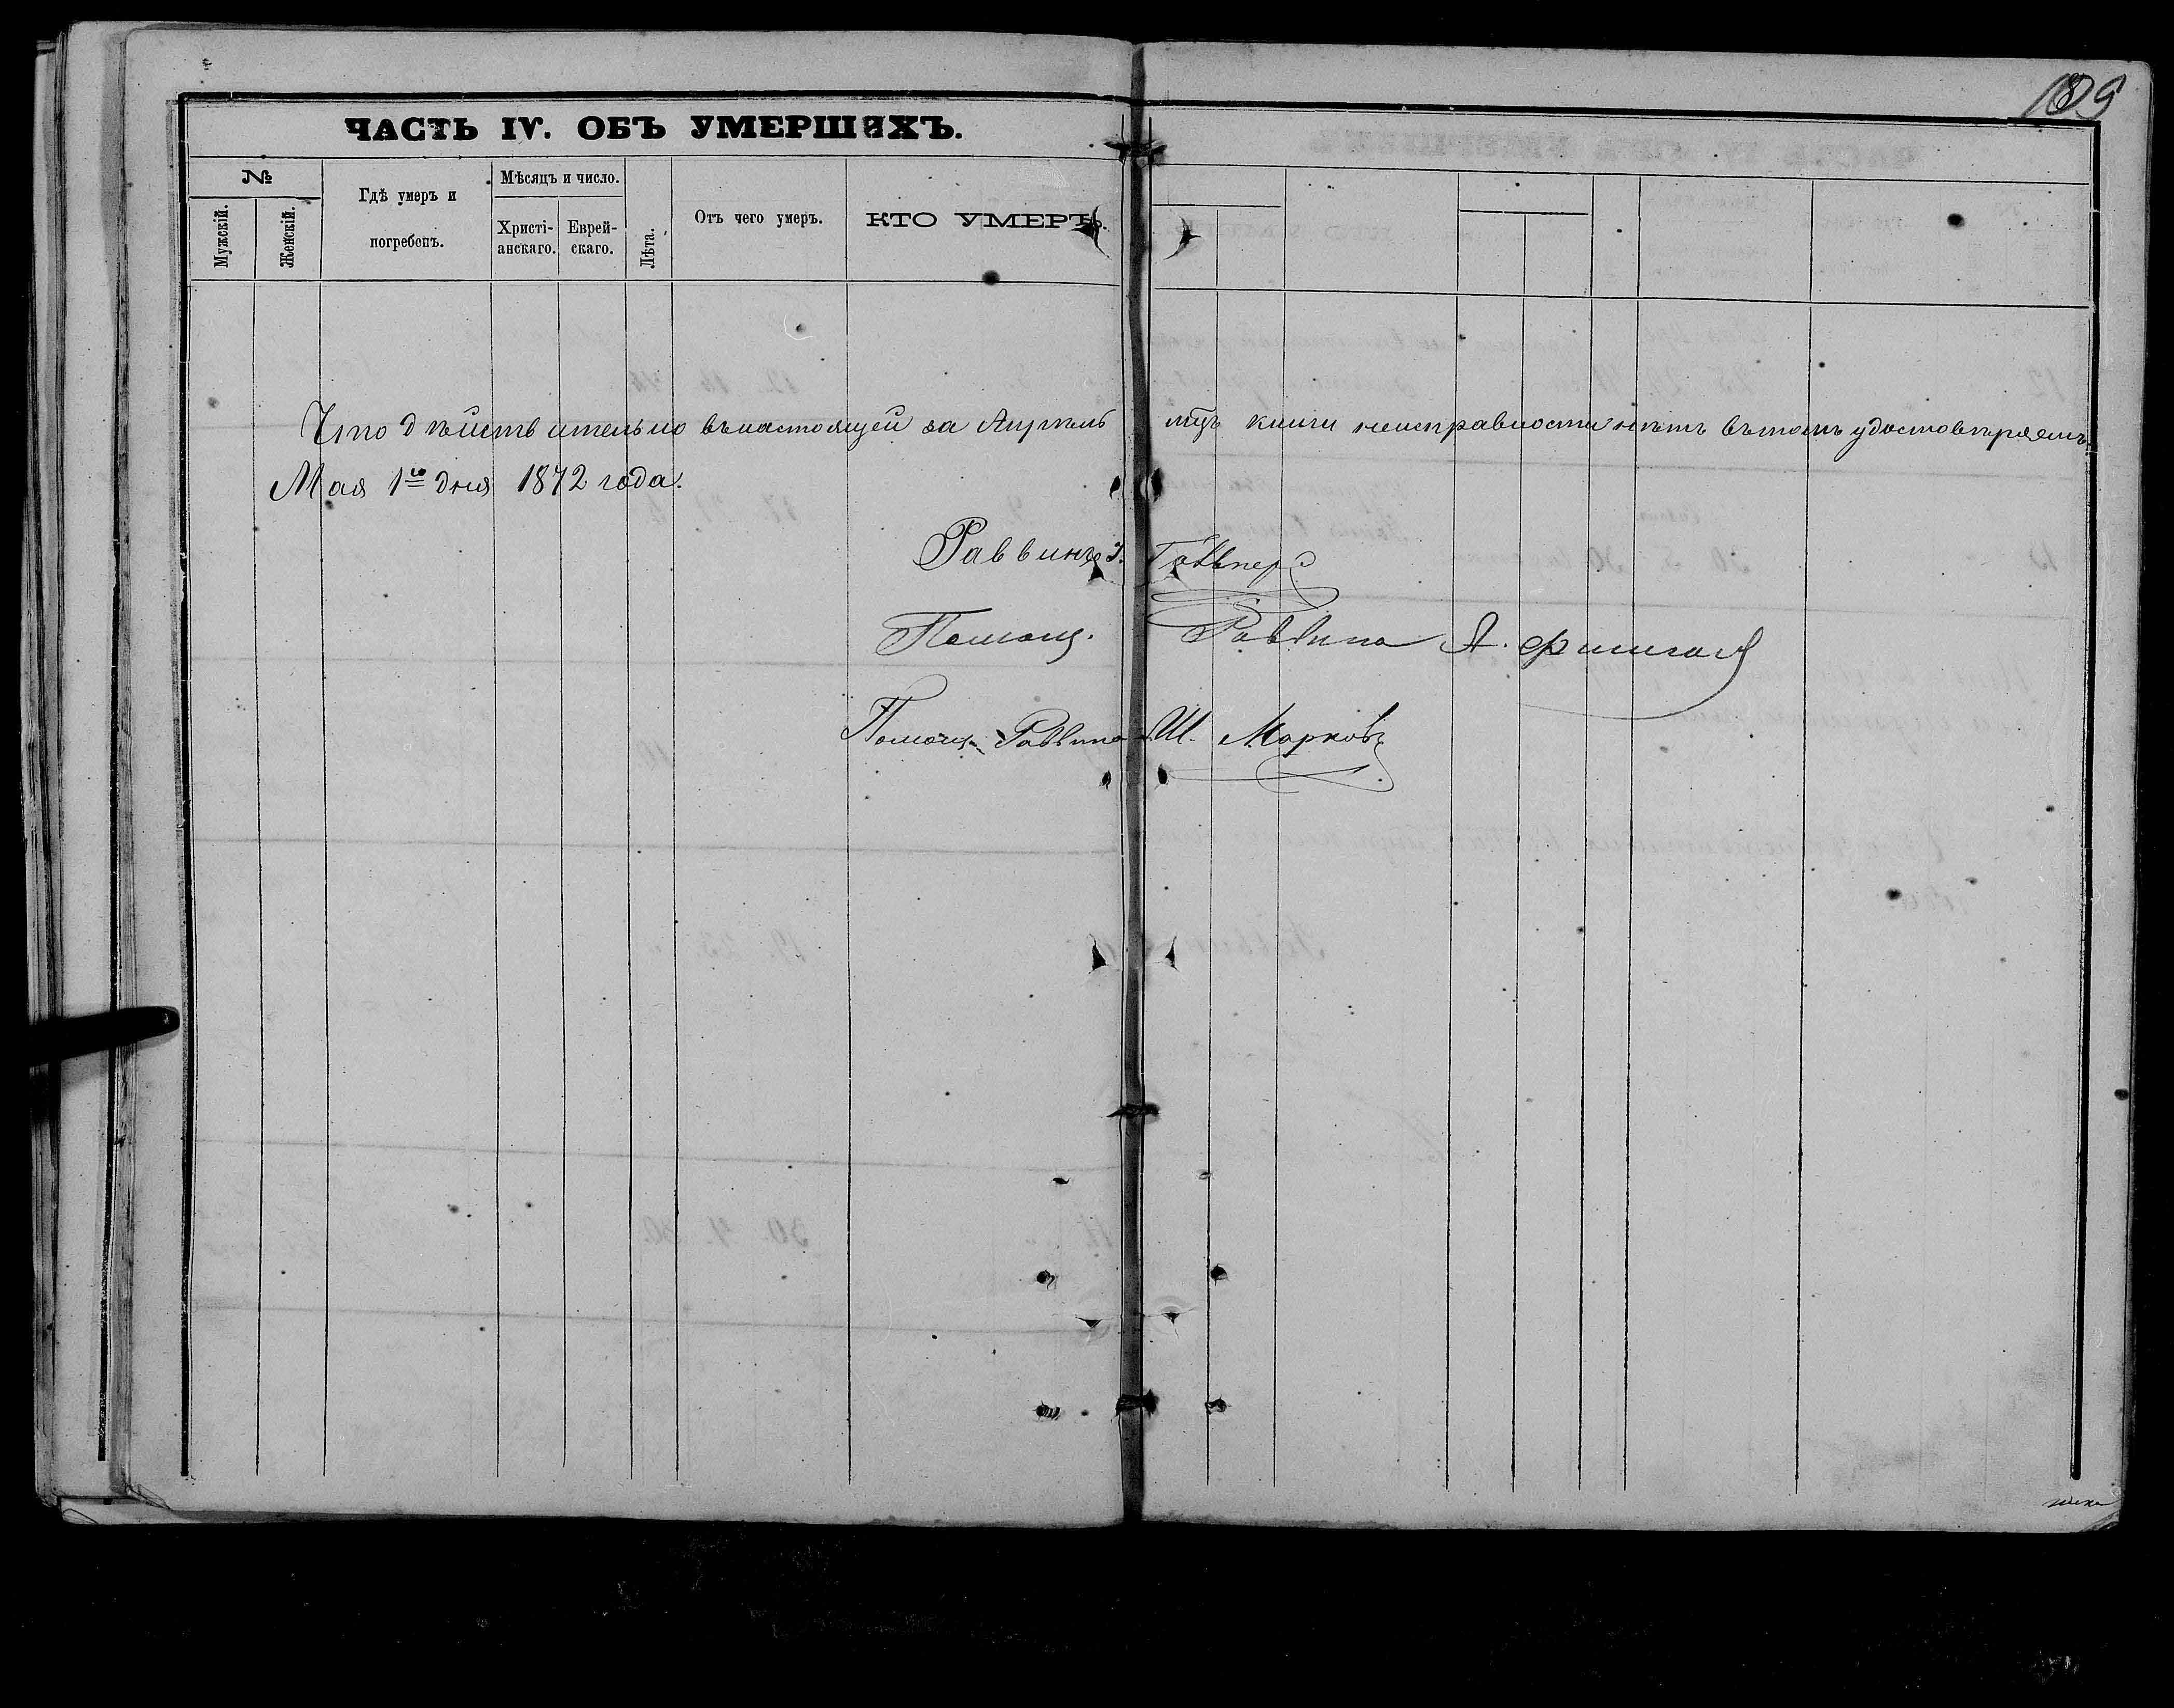 189
ЧАСТЬ IV. ОБЪ УМЕРШИХЪ.
№
Мужскій.
Женскій.
Гдѣ умеръ и
погребенъ.
Мѣсяцъ и число.
Христі-
анскаго.
Еврей-
скаго.
Лѣта.
Отъ чего умеръ.
КТО УМЕРЪ.
Что дѣйствительно въ настоящей за Апрѣль мцъ книги неисправности нѣтъ въ томъ удостовѣряемъ.
Мая 1го дня 1872 года.
Раввинъ
Помощ. Раввина А.
Помощ. Раввина Ш. Марковъ